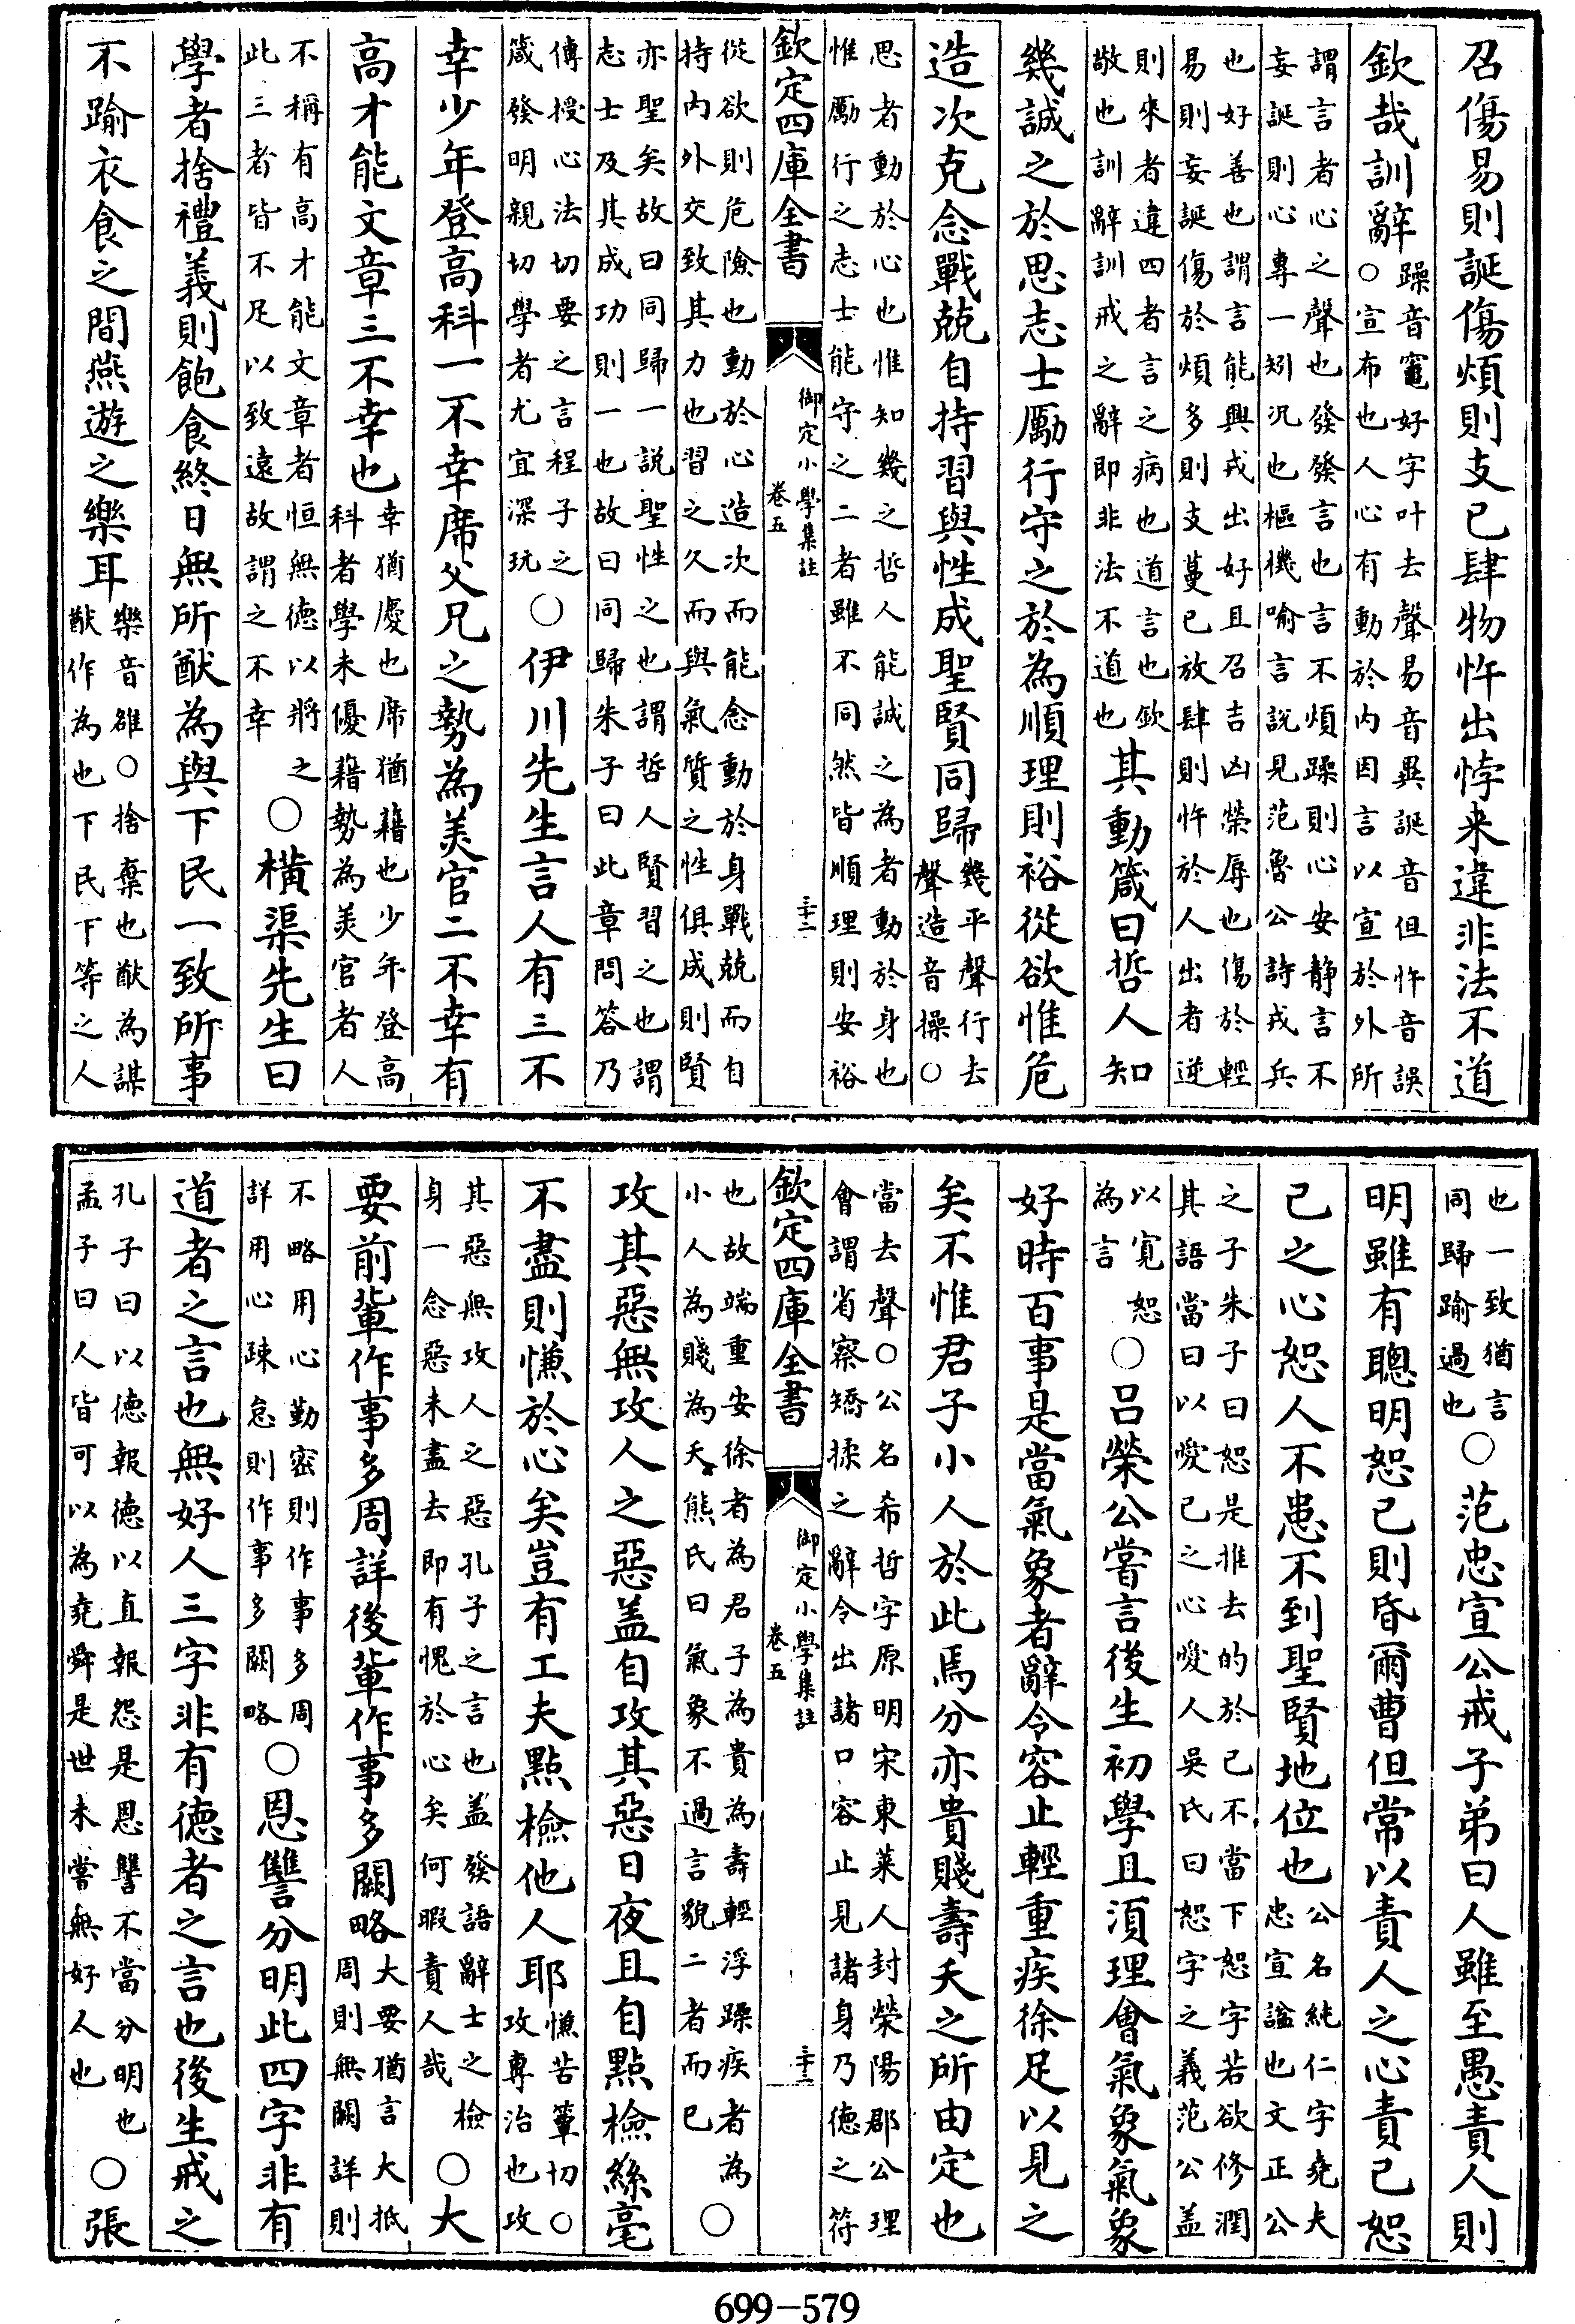 召傷易則誕傷煩則支已肆物忤出悖来違非法不道
欽哉訓辭
躁音竈好字叶去聲易音異誕音但忤音誤
○宣布也人心有動於内因言以宣於外所
謂言者心之聲也發發言也言不煩躁則心安静言不
妄誕則心專一矧況也樞機喻言說見范魯公詩戎兵
也好善也謂言能興戎出好且召吉凶榮辱也傷於輕
易則妄誕傷於煩多則支蔓已放肆則忤於人出者逆
則來者違四者言之病也道言也欽
敬也訓辭訓戒之辭即非法不道也
其動箴曰哲人知
幾誠之於思志士勵行守之於為順理則裕從欲惟危
造次克念戰兢自持習與性成聖賢同歸
幾平聲行去
聲造音操○
思者動於心也惟知幾之哲人能誠之為者動於身也
惟勵行之志士能守之二者雖不同然皆順理則安裕
欽定四庫全書
御定小學集註
卷五
三十二
從欲則危險也動於心造次而能念動於身戰兢而自
持内外交致其力也習之久而與氣質之性俱成則賢
亦聖矣故曰同歸一說聖性之也謂哲人賢習之也謂
志士及其成功則一也故曰同歸朱子曰此章問答乃
傳授心法切要之言程子之
箴發明親切學者尤宜深玩
○伊川先生言人有三不
幸少年登高科一不幸席父兄之勢為羙官二不幸有
高才能文章三不幸也
幸猶慶也席猶藉也少年登高
科者學未優藉勢為羙官者人
不稱有高才能文章者恒無德以將之
此三者皆不足以致遠故謂之不幸
○橫渠先生曰
學者捨禮義則飽食終日無所猷為與下民一致所事
不踰衣食之間燕遊之樂耳
樂音雒○捨棄也猷為謀
猷作為也下民下等之人
也一致猶言
同歸踰過也
○范忠宣公戒子弟曰人雖至愚責人則
明雖有聰明恕己則昏爾曹但常以責人之心責己恕
己之心恕人不患不到聖賢地位也
公名純仁字堯夫
忠宣諡也文正公
之子朱子曰恕是推去的於己不當下恕字若欲修潤
其語當曰以愛己之心愛人吳氏曰恕字之義范公盖
以寛恕
為言
○呂榮公嘗言後生初學且須理會氣象氣象
好時百事是當氣象者辭令容止輕重疾徐足以見之
矣不惟君子小人於此焉分亦貴賤壽夭之所由定也
當去聲○公名希哲字原明宋東萊人封榮陽郡公理
會謂省察矯揉之辭令出諸口容止見諸身乃德之符
欽定四庫全書
御定小學集註
卷五
三十三
也故端重安徐者為君子為貴為壽輕浮躁疾者為
小人為賤為夭熊氏曰氣象不過言貌二者而已
○
攻其惡無攻人之惡盖自攻其惡日夜且自點檢絲毫
不盡則慊於心矣豈有工夫點檢他人耶
慊苦簟切○
攻專治也攻
其惡無攻人之惡孔子之言也盖發語辭士之檢
身一念惡未盡去即有愧於心矣何暇責人哉
○大
要前輩作事多周詳後輩作事多闕略
大要猶言大抵
周則無闕詳則
不略用心勤密則作事多周
詳用心踈怠則作事多闕略
○恩讐分明此四字非有
道者之言也無好人三字非有德者之言也後生戒之
孔子曰以德報德以直報怨是恩讐不當分明也
孟子曰人皆可以為堯舜是世未嘗無好人也
○張
699-579